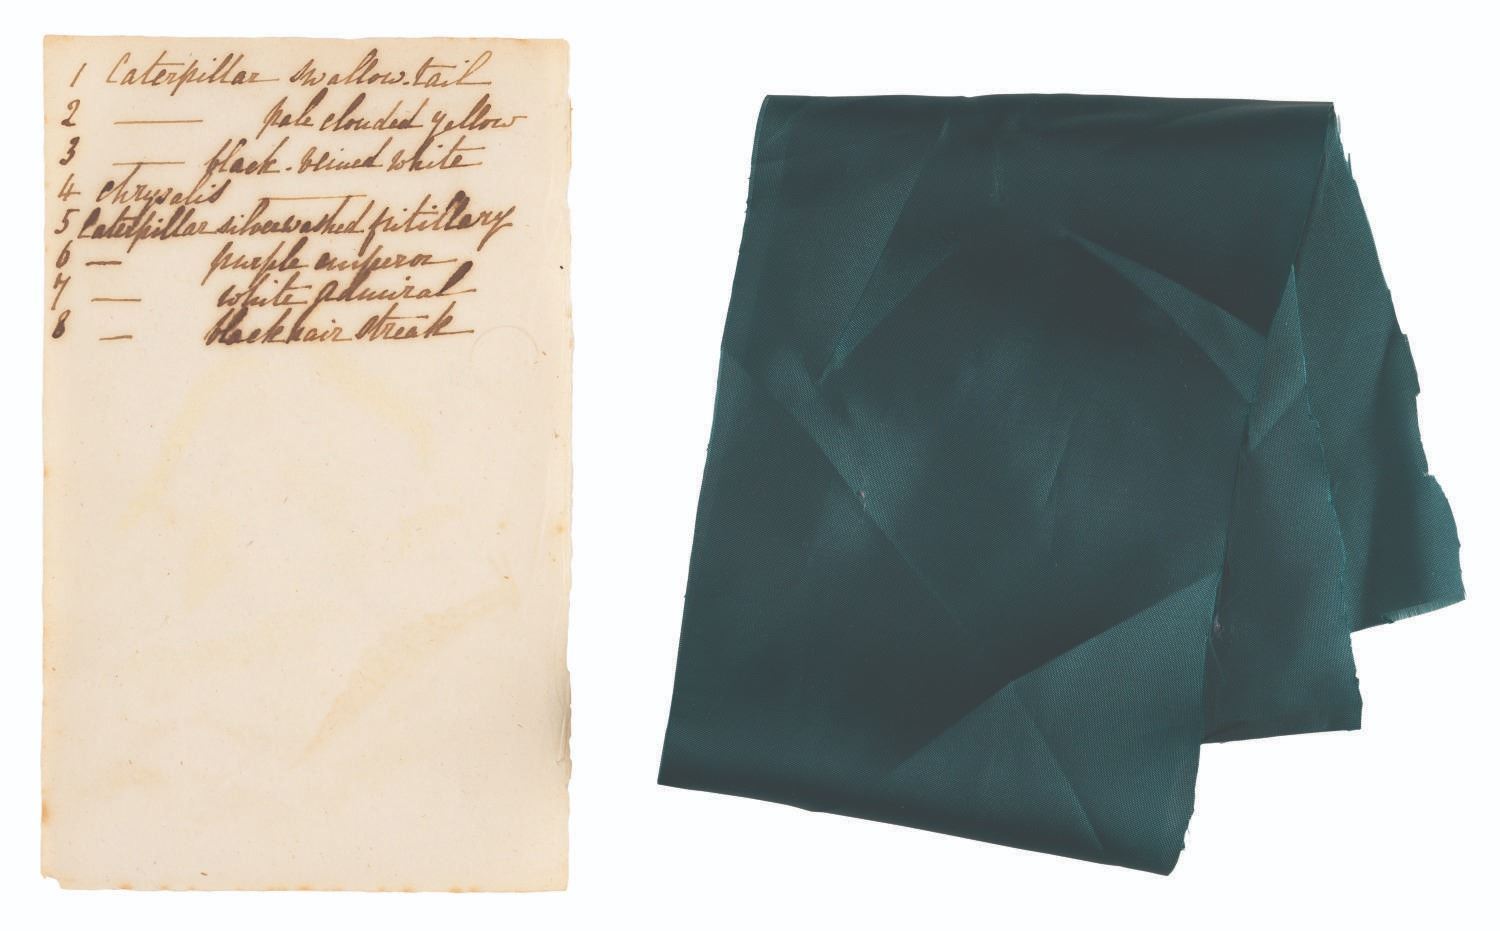 1 Caterpillar swallow-tail
2 — pale clouded yellow
3 — black-veined white
4 chrysalis —
5 Caterpillar silverwashed fritillary
6 — purple emperor
7 — white admiral
8 — black hair streak